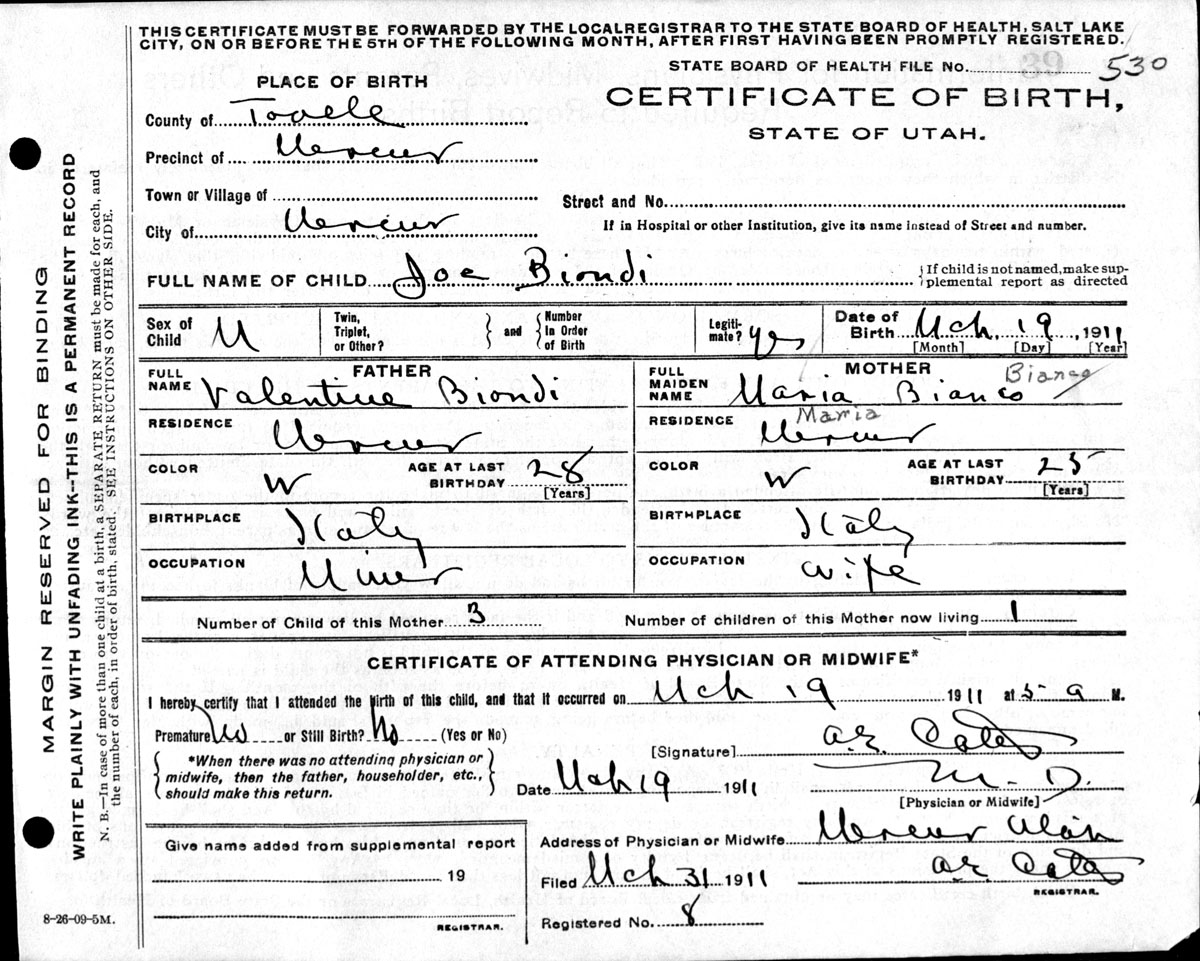 THIS CERTIFICATE MUST BE FORWARDED BY THE LOCAL REGISTRAR TO THE STATE BOARD OF HEALTH, SALT LAKE
CITY, ON OR BEFORE THE 5TH OF THE FOLLOWING MONTH, AFTER FIRST HAVING BEEN PROMPTLY REGISTERED.
STATE BOARD OF HEALTH FILE No. 530
PLACE OF BIRTH
CERTIFICATE OF BIRTH,
STATE OF UTAH.
County of Tooele
Precinct of Mercur
Town or Village of
Street and No.
City of Mercur
If in Hospital or other Institution, give its name instead of Street and number.
FULL NAME OF CHILD Joe Biondi
{If child is not named, make sup-
plemental report as directed
Sex of Child M
Twin, Triplet, or Other? } and { Number In Order of Birth
Legiti-mate? yes
Date of Birth Mch, 19, 1911
[Month] [Day] [Year]
FATHER
FULL NAME Valentine Biondi
RESIDENCE Mercur
COLOR W
AGE AT LAST BIRTHDAY 28
[Years]
BIRTHPLACE Italy
OCCUPATION Miner
MOTHER
Bianco
FULL MAIDEN NAME Maria Bianco
Maria
RESIDENCE Mercur
COLOR W
AGE AT LAST BIRTHDAY 25
[Years]
BIRTHPLACE Italy
OCCUPATION wife
Number of Child of this Mother 3
Number of children of this Mother now living 1
CERTIFICATE OF ATTENDING PHYSICIAN OR MIDWIFE*
I hereby certify that I attended the birth of this child, and that it occurred on Mch 19 1911 at 5 a M.
Premature No or Still Birth? No (Yes or No)
*When there was no attending physician or
midwife, then the father, householder, etc.,
should make this return.
[Signature]
M. D.
Date Mch 19 1911
[Physician or Midwife]
Give name added from supplemental report
19
REGISTRAR.
Address of Physician or Midwife Mercur Utah
Filed Mch 31 1911
REGISTRAR.
Registered No. 8
8-26-09-5M.
MARGIN RESERVED FOR BINDING
WRITE PLAINLY WITH UNFADING INK--THIS IS A PERMANENT RECORD
N. B.—In case of more than one child at a birth, a SEPARATE RETURN must be made for each, and
the number of each, in order of birth, stated. SEE INSTRUCTIONS ON OTHER SIDE.